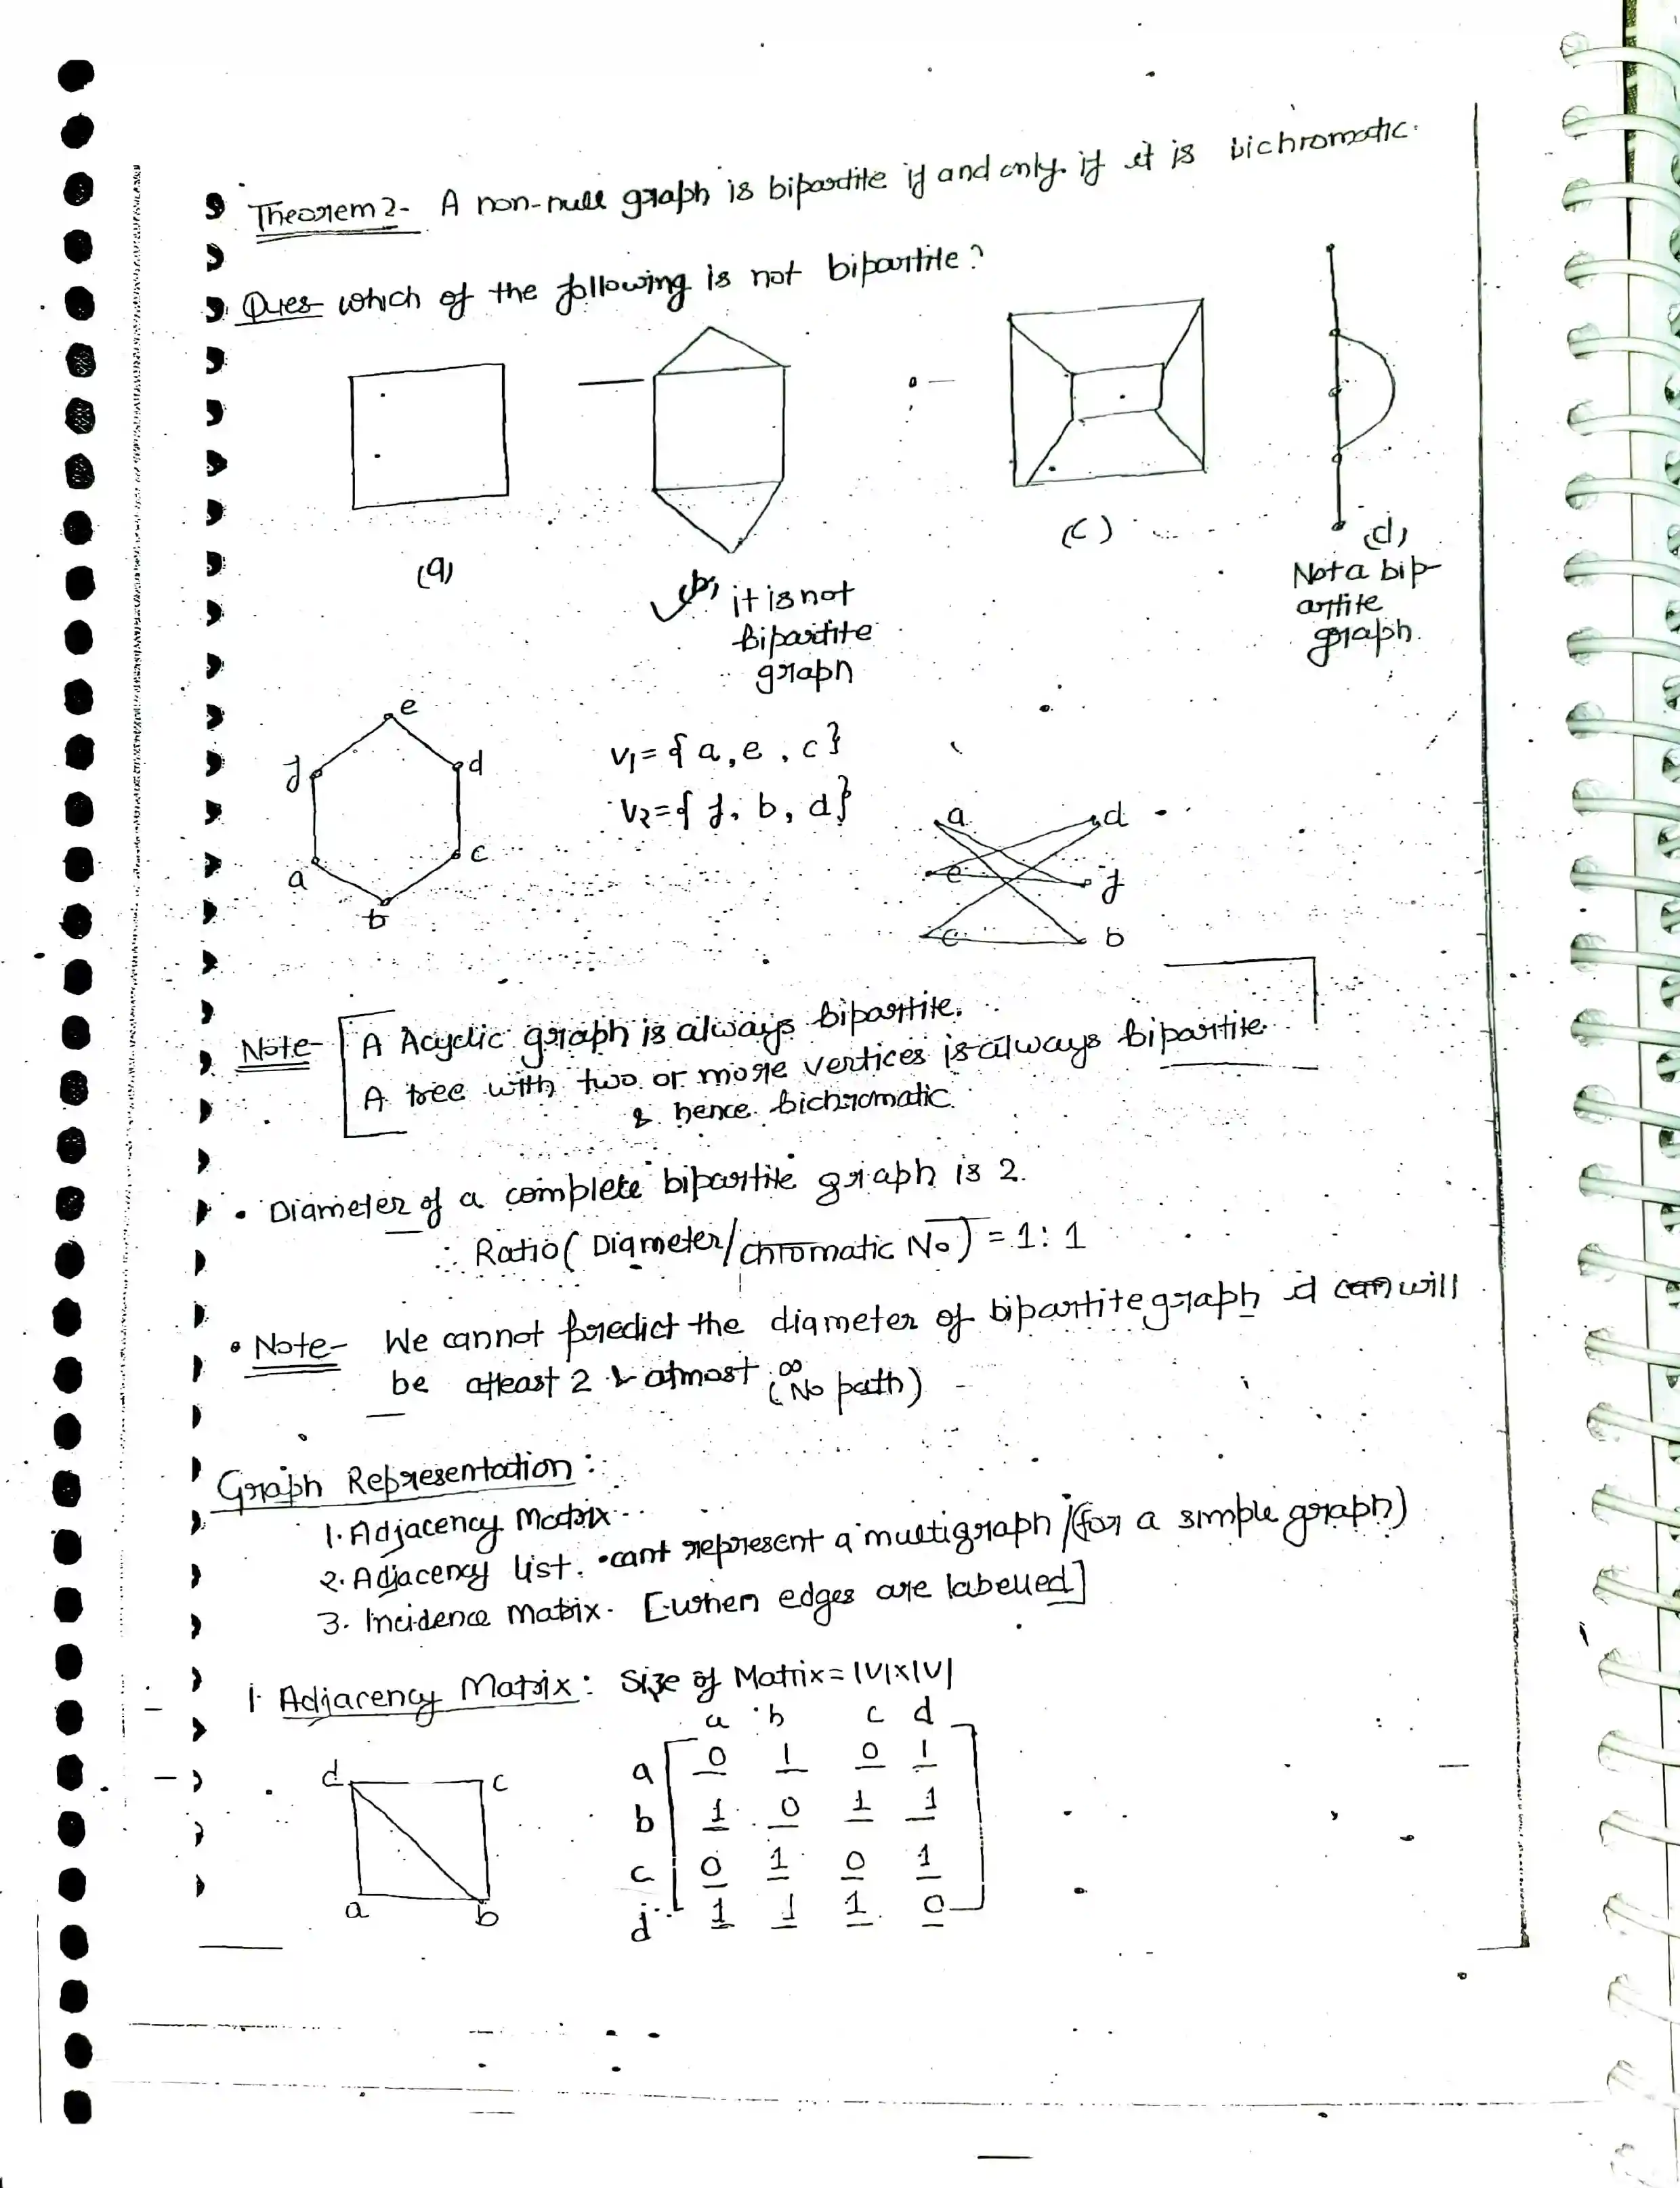 Theorem 2- A non-null graph is bipartite if and only if it is bichromatic.
Ques- which of the following is not bipartite?
(a)
(b) it is not
bipartite
graph
(c)
(d)
Not a bip-
artite
graph.
e
f
d
a
c
b
V1 = { a, e, c }
V2 = { f, b, d }
a d
e f
c b
Note- A Acyclic graph is always bipartite.
A tree with two or more vertices is always bipartite
& hence bichromatic.
• Diameter of a complete bipartite graph is 2.
∴ Ratio ( Diameter/chromatic No ) = 1 : 1
• Note- We cannot predict the diameter of bipartite graph it can will
be atleast 2 & atmost ∞
(No path)
Graph Representation :
1. Adjacency Matrix
2. Adjacency list. • cant represent a multigraph /(for a simple graph)
3. Incidence Matrix. [when edges are labelled]
1. Adjacency Matrix : Size of Matrix = |V|x|V|
a b c d
a 0 1 0 1
b 1 0 1 1
c 0 1 0 1
d 1 1 1 0
d c
a b